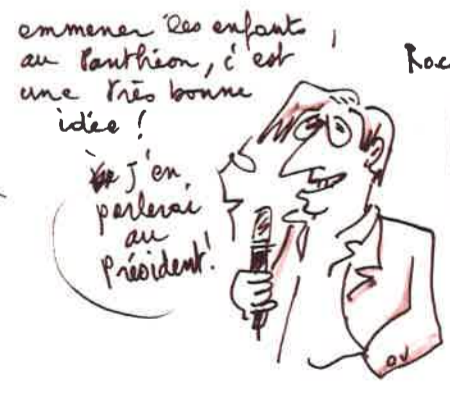 emmener les enfants
au Panthéon, c'est
une très bonne
idée !
j'en
parlerai
au
Président !
Roc
OV